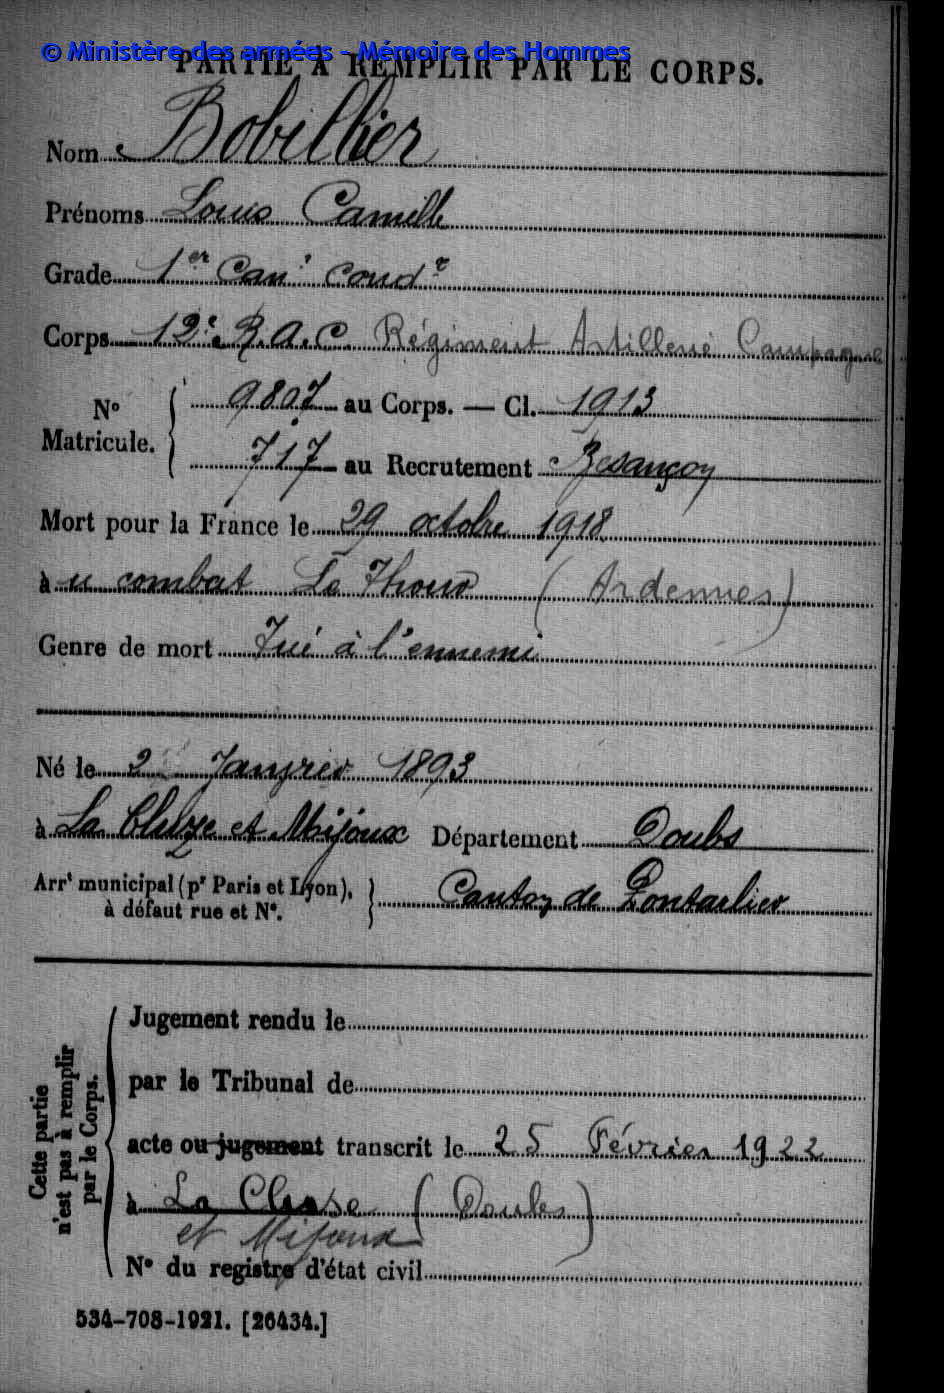 © Ministère des armées - Mémoire des Hommes
PARTIE À REMPLIR PAR LE CORPS.
Nom Bobillier
Prénoms Louis Camille
Grade 1er Can. Condr
Corps 12e R.A.C. Régiment Artillerie Campagne
No Matricule. 9807 au Corps. — Cl. 1913
717 au Recrutement Besançon
Mort pour la France le 29 octobre 1918
à u combat Le Thour (Ardennes)
Genre de mort Tué à l'ennemi
Né le 2 Janvier 1893
à La Cluse et Mijoux Département Doubs
Arrt municipal (pr Paris et Lyon), à défaut rue et No. Canton de Pontarlier
Cette partie n'est pas à remplir par le Corps.
Jugement rendu le
par le Tribunal de
acte ou jugement transcrit le 25 Février 1922
à La Cluse (Doubs)
et Mijoux
No du registre d'état civil
534-708-1921. [26434.]